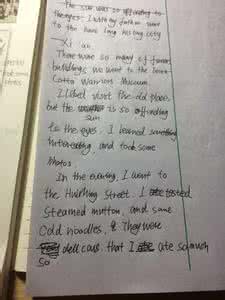 the sun was so offending to
the eyes. I with my father went
to the have long history city
— Xi'an.
There were so many of famous
buildings, we went to the Terra-
Cotta Warriors Museum.
I visit the old place,
but the sun is so offending
to the eyes. I learned something
interesting, and took some
photos.
In the evening, I went to
the Huimin Street. I tasted
Steamed mutton, and some
Cold noodles, They were
delicous. that I ate so much
so